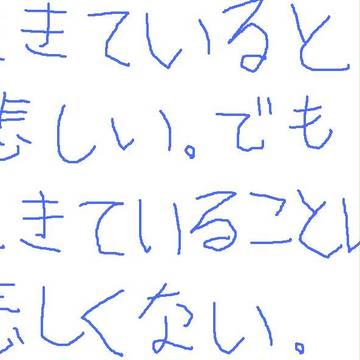 きていると
悲しい。でも
きていることは
悲しくない。